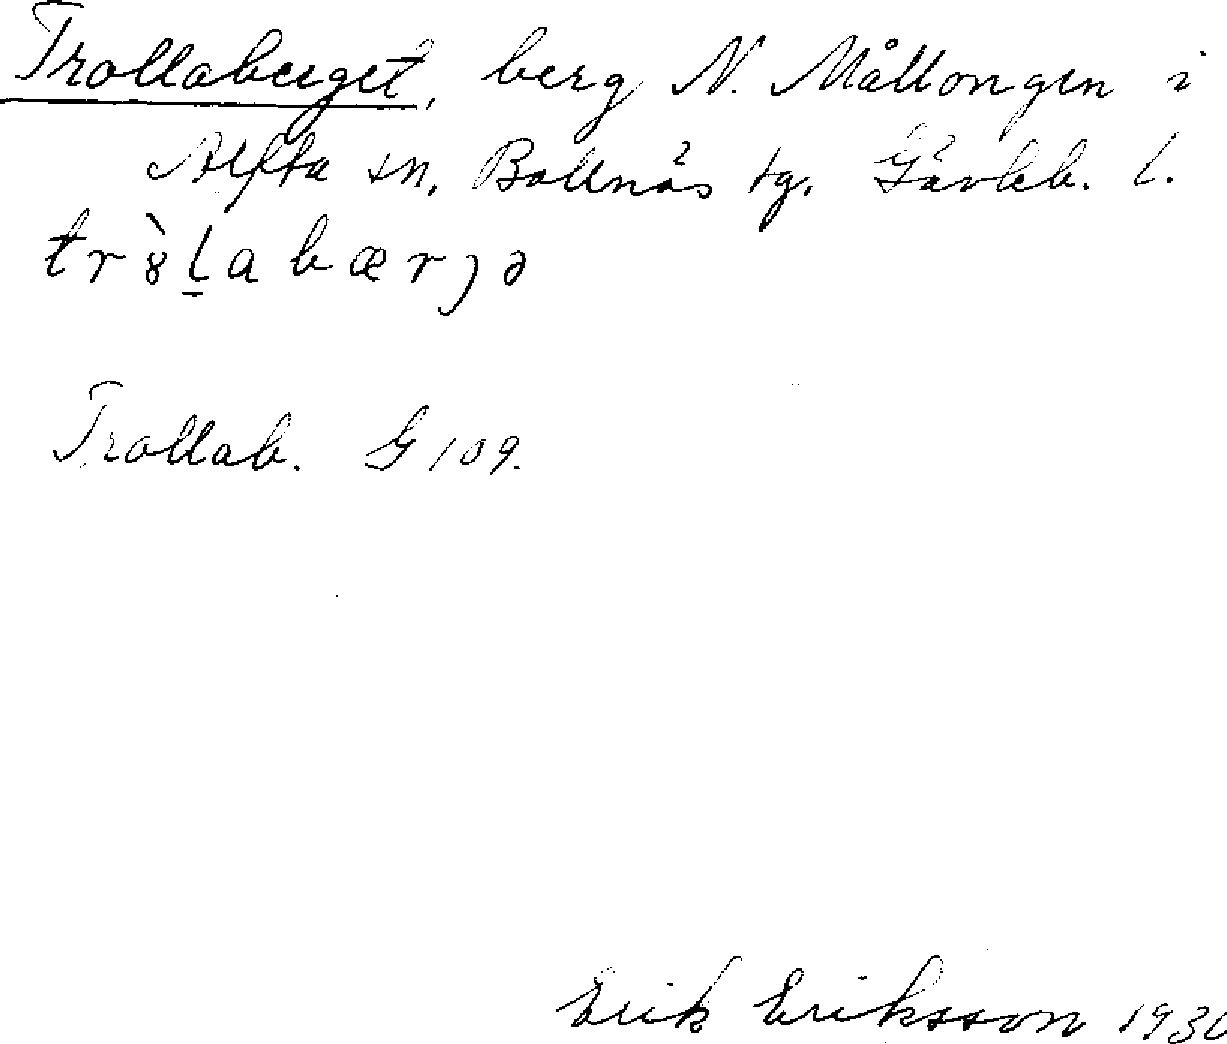 Trollaberget, berg N. Mållongen i
Alfta sn, Bollnäs tg. Gävleb. l.
tr8̀l̠abærȷə
Trollab. G 109.
Erik Eriksson 1930